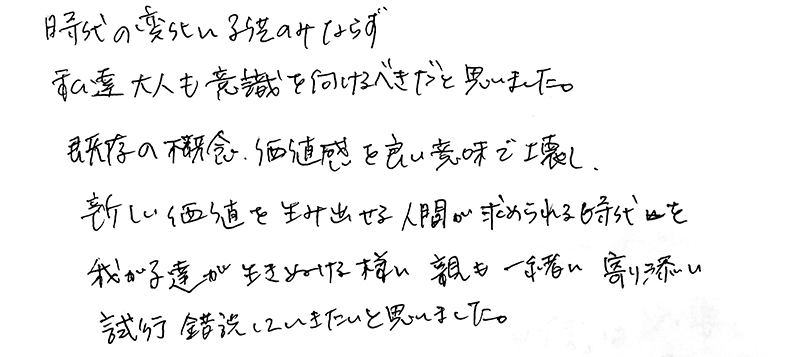 時代の変化に子供のみならず
私達大人も意識を向けるべきだと思いました。
既存の概念、価値感を良い意味で壊し、
新しい価値を生み出せる人間が求められる時代を
我が子達が生きぬける様に 親も一緒に 寄り添い
試行錯誤していきたいと思いました。